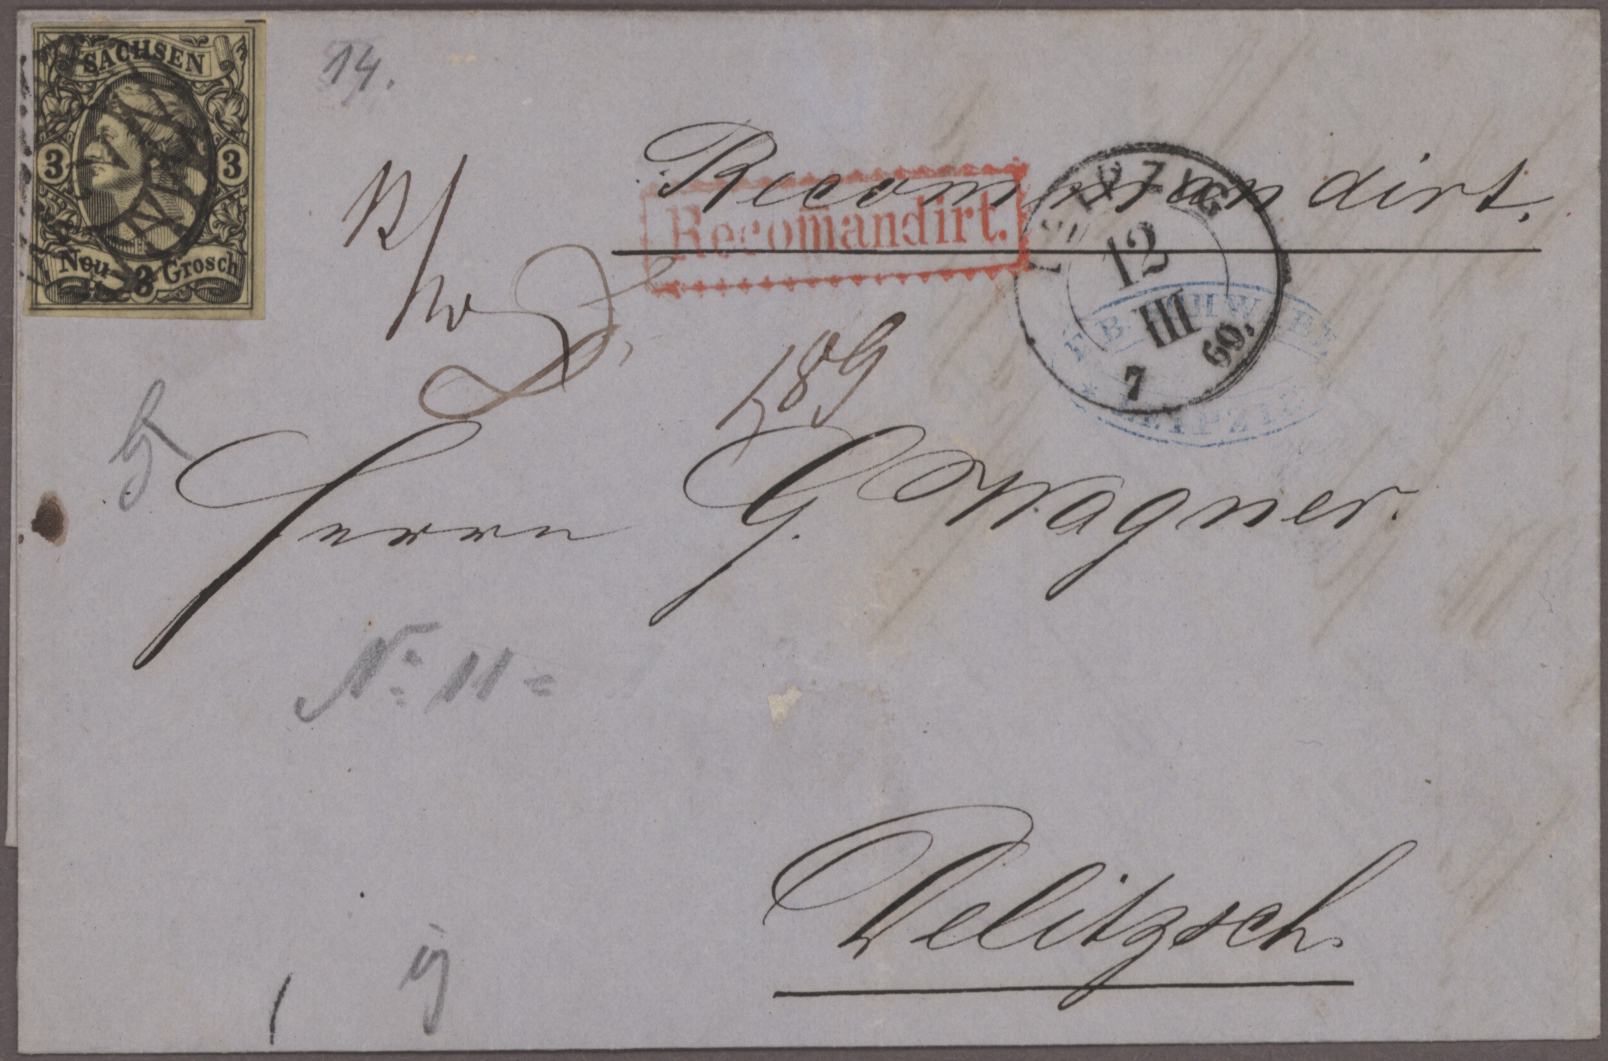 SACHSEN
3 3
Neu- 3 Grosch
14.
Recommandirt.
Recom̅andirt.
LEIPZIG
12
III
69.
7
LEIPZIG
189
Herrn G. Wagner.
No 11 =
Delitzsch.